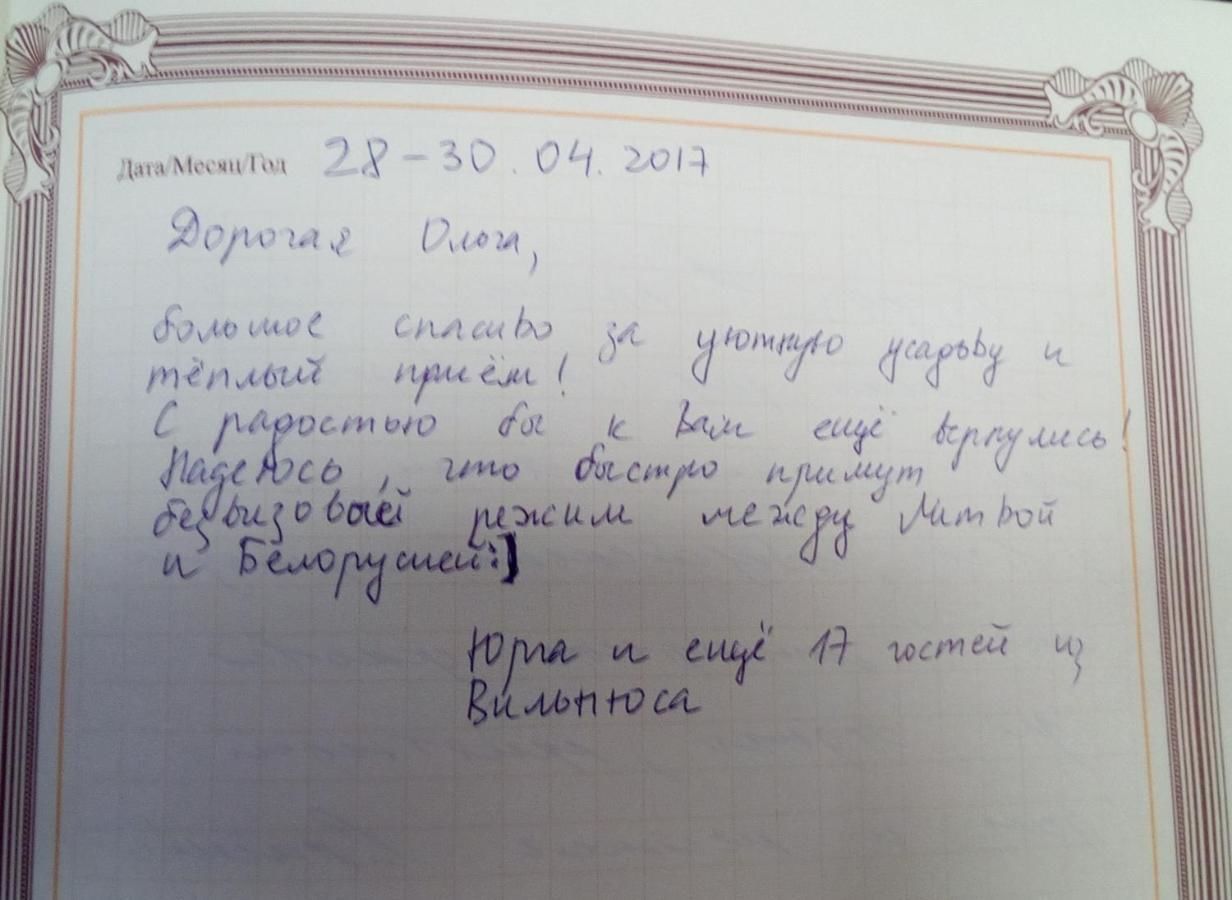 Дата/Месяц/Год 28-30.04.2017
Дорогая Ольга,
большое спасибо за уютную усадьбу и
тёплый приём!
С радостью бы к Вам ещё вернулись!
Надеюсь, что быстро примут
безвизовый режим между Литвой
и Белорусией:)
Юрга и ещё 17 гостей из
Вильнюса